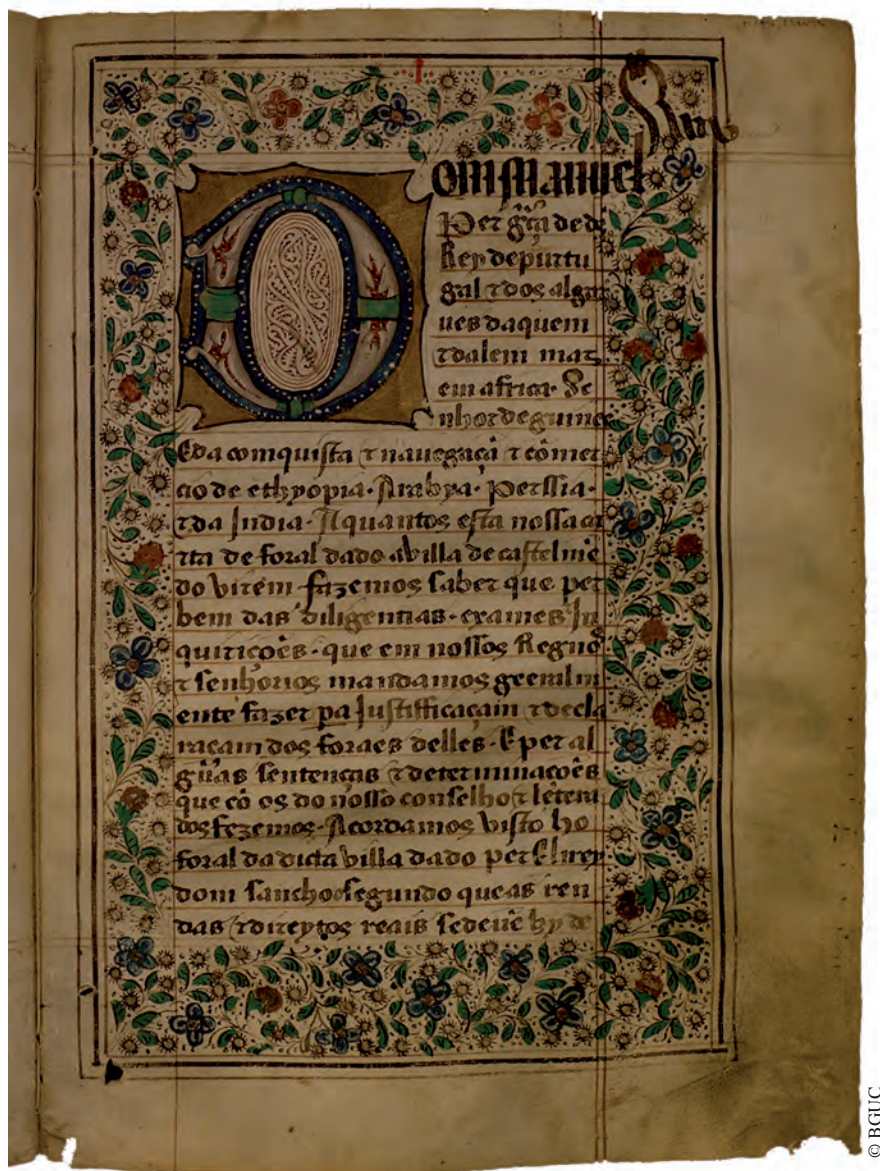 Dom Manuel
Per grã de ds
Rey de purtu
gal ⁊ dos algar
ues daquem
⁊ dalem mar
em africa. Se
nhor de guinee
E da comquista ⁊ nauegaçã ⁊ cõmer
cio de ethyopia. Arabya. Perssia.
⁊ da India. A quantos esta nossa car
rta de foral dado a villa de castel mẽ
do virem fazemos saber que per
bem das diligencias. exames In
quiriçoẽs. que em nossos Regnos
⁊ senhorios mandamos geerallm
ente fazer pa Justifficaçam ⁊ decla
raçam dos foraes delles. E per al
gũas sentenças ⁊ determinaçoẽs
que cõ os do nosso conselho ⁊ leterra
dos fezemos. Acordamos visto ho
foral da dicta villa dado per Elrey
dom sancho segundo que as ren
das ⁊ direytos reais se deuẽ hy de
© BGUC